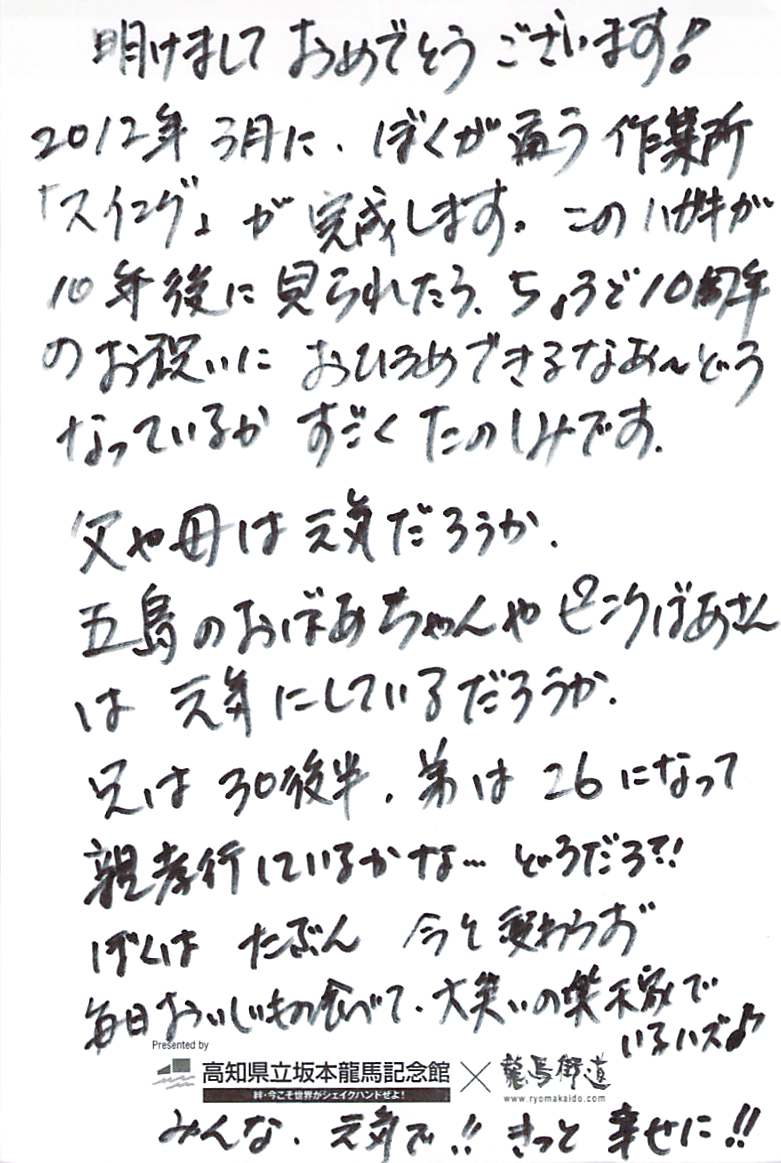 明けまして おめでとう ございます!
2012年 3月に、ぼくが通う 作業所
「スイング」が 完成します。このハガキが
10年後に見られたら、ちょうど10周年
のお祝いに おひろめできるなあ〜どう
なっているか すごく たのしみです。
父や母は元気だろうか。
五島のおばあちゃんや ピンクばあさん
は 元気にしているだろうか。
兄は 30後半、弟は 26になって
親孝行しているかな… どうだろ?!
ぼくは たぶん 今と変わらず
毎日おいしいもの食べて、大笑いの楽天家で
いるハズ♪
Presented by
高知県立坂本龍馬記念館 × 龍馬街道
絆・今こそ世界がシェイクハンドせよ!
www.ryomakaido.com
みんな、元気で!! きっと 幸せに!!